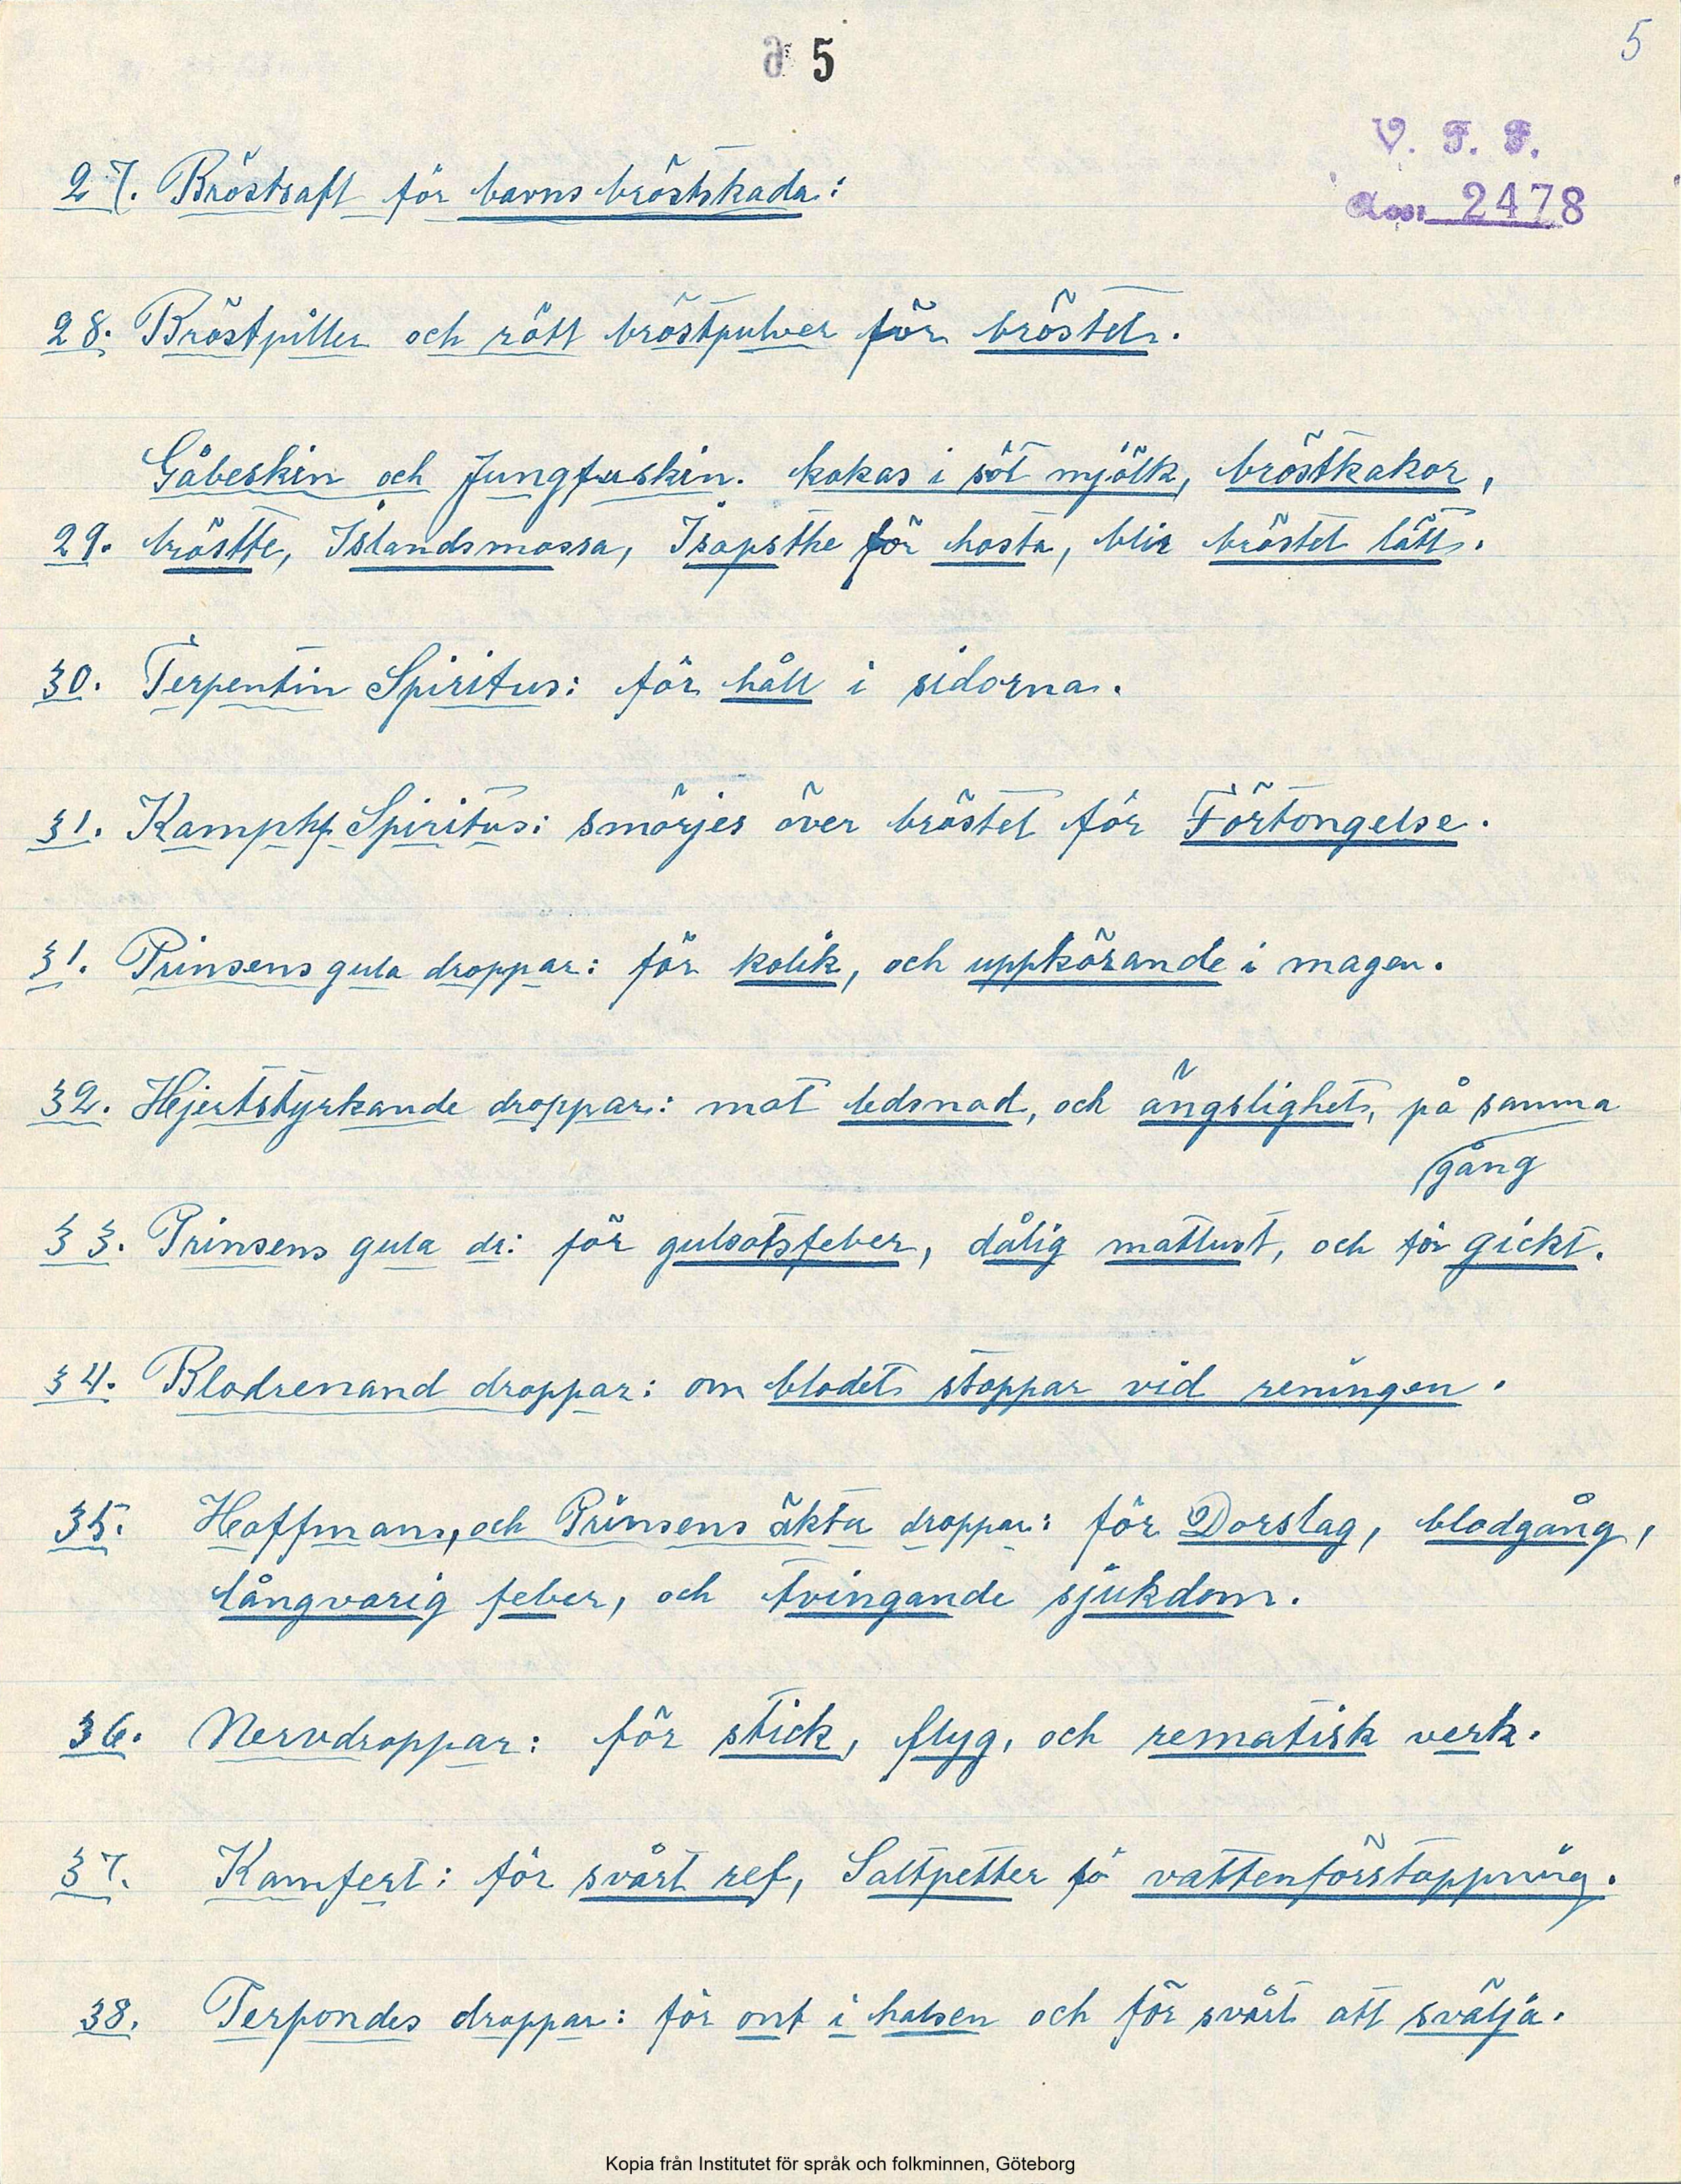 5 5
V. F. F.
Acc. 2478
27. Bröstsaft för barns bröstskada:
28. Bröstpiller och rött bröstpulver för bröstet.
Gåbeskin och Jungfuskin. kokas i söt mjölk, bröstkakor,
29. bröstte, Islandsmossa, Isopsthe för hosta, blir bröstet lätt.
30. Terpentin Spiritus: för håll i sidorna.
31. Kamphf Spiritus: smörjes över bröstet för Förtongelse.
31. Prinsens gula droppar: för kolik, och uppkörande i magen.
32. Hjertstyrkande droppar: mot ledsnad, och ängslighet, på samma
gång
33. Prinsens gula dr: för gulsotsfeber, dålig matlust, och för gickt.
34. Blodrenand droppar: om blodet stoppar vid reningen.
35. Hoffmans, och Prinsens äkta droppar: för Dorslag, blodgång,
långvarig feber, och tvingande sjukdom.
36. Nervdroppar: för stick, flyg, och rematisk verk.
37. Kamfert: för svårt ref, Saltpetter fö vattenförstoppning.
38. Terpondes droppar: för ont i halsen och för svårt att svälja.
Kopia från Institutet för språk och folkminnen, Göteborg